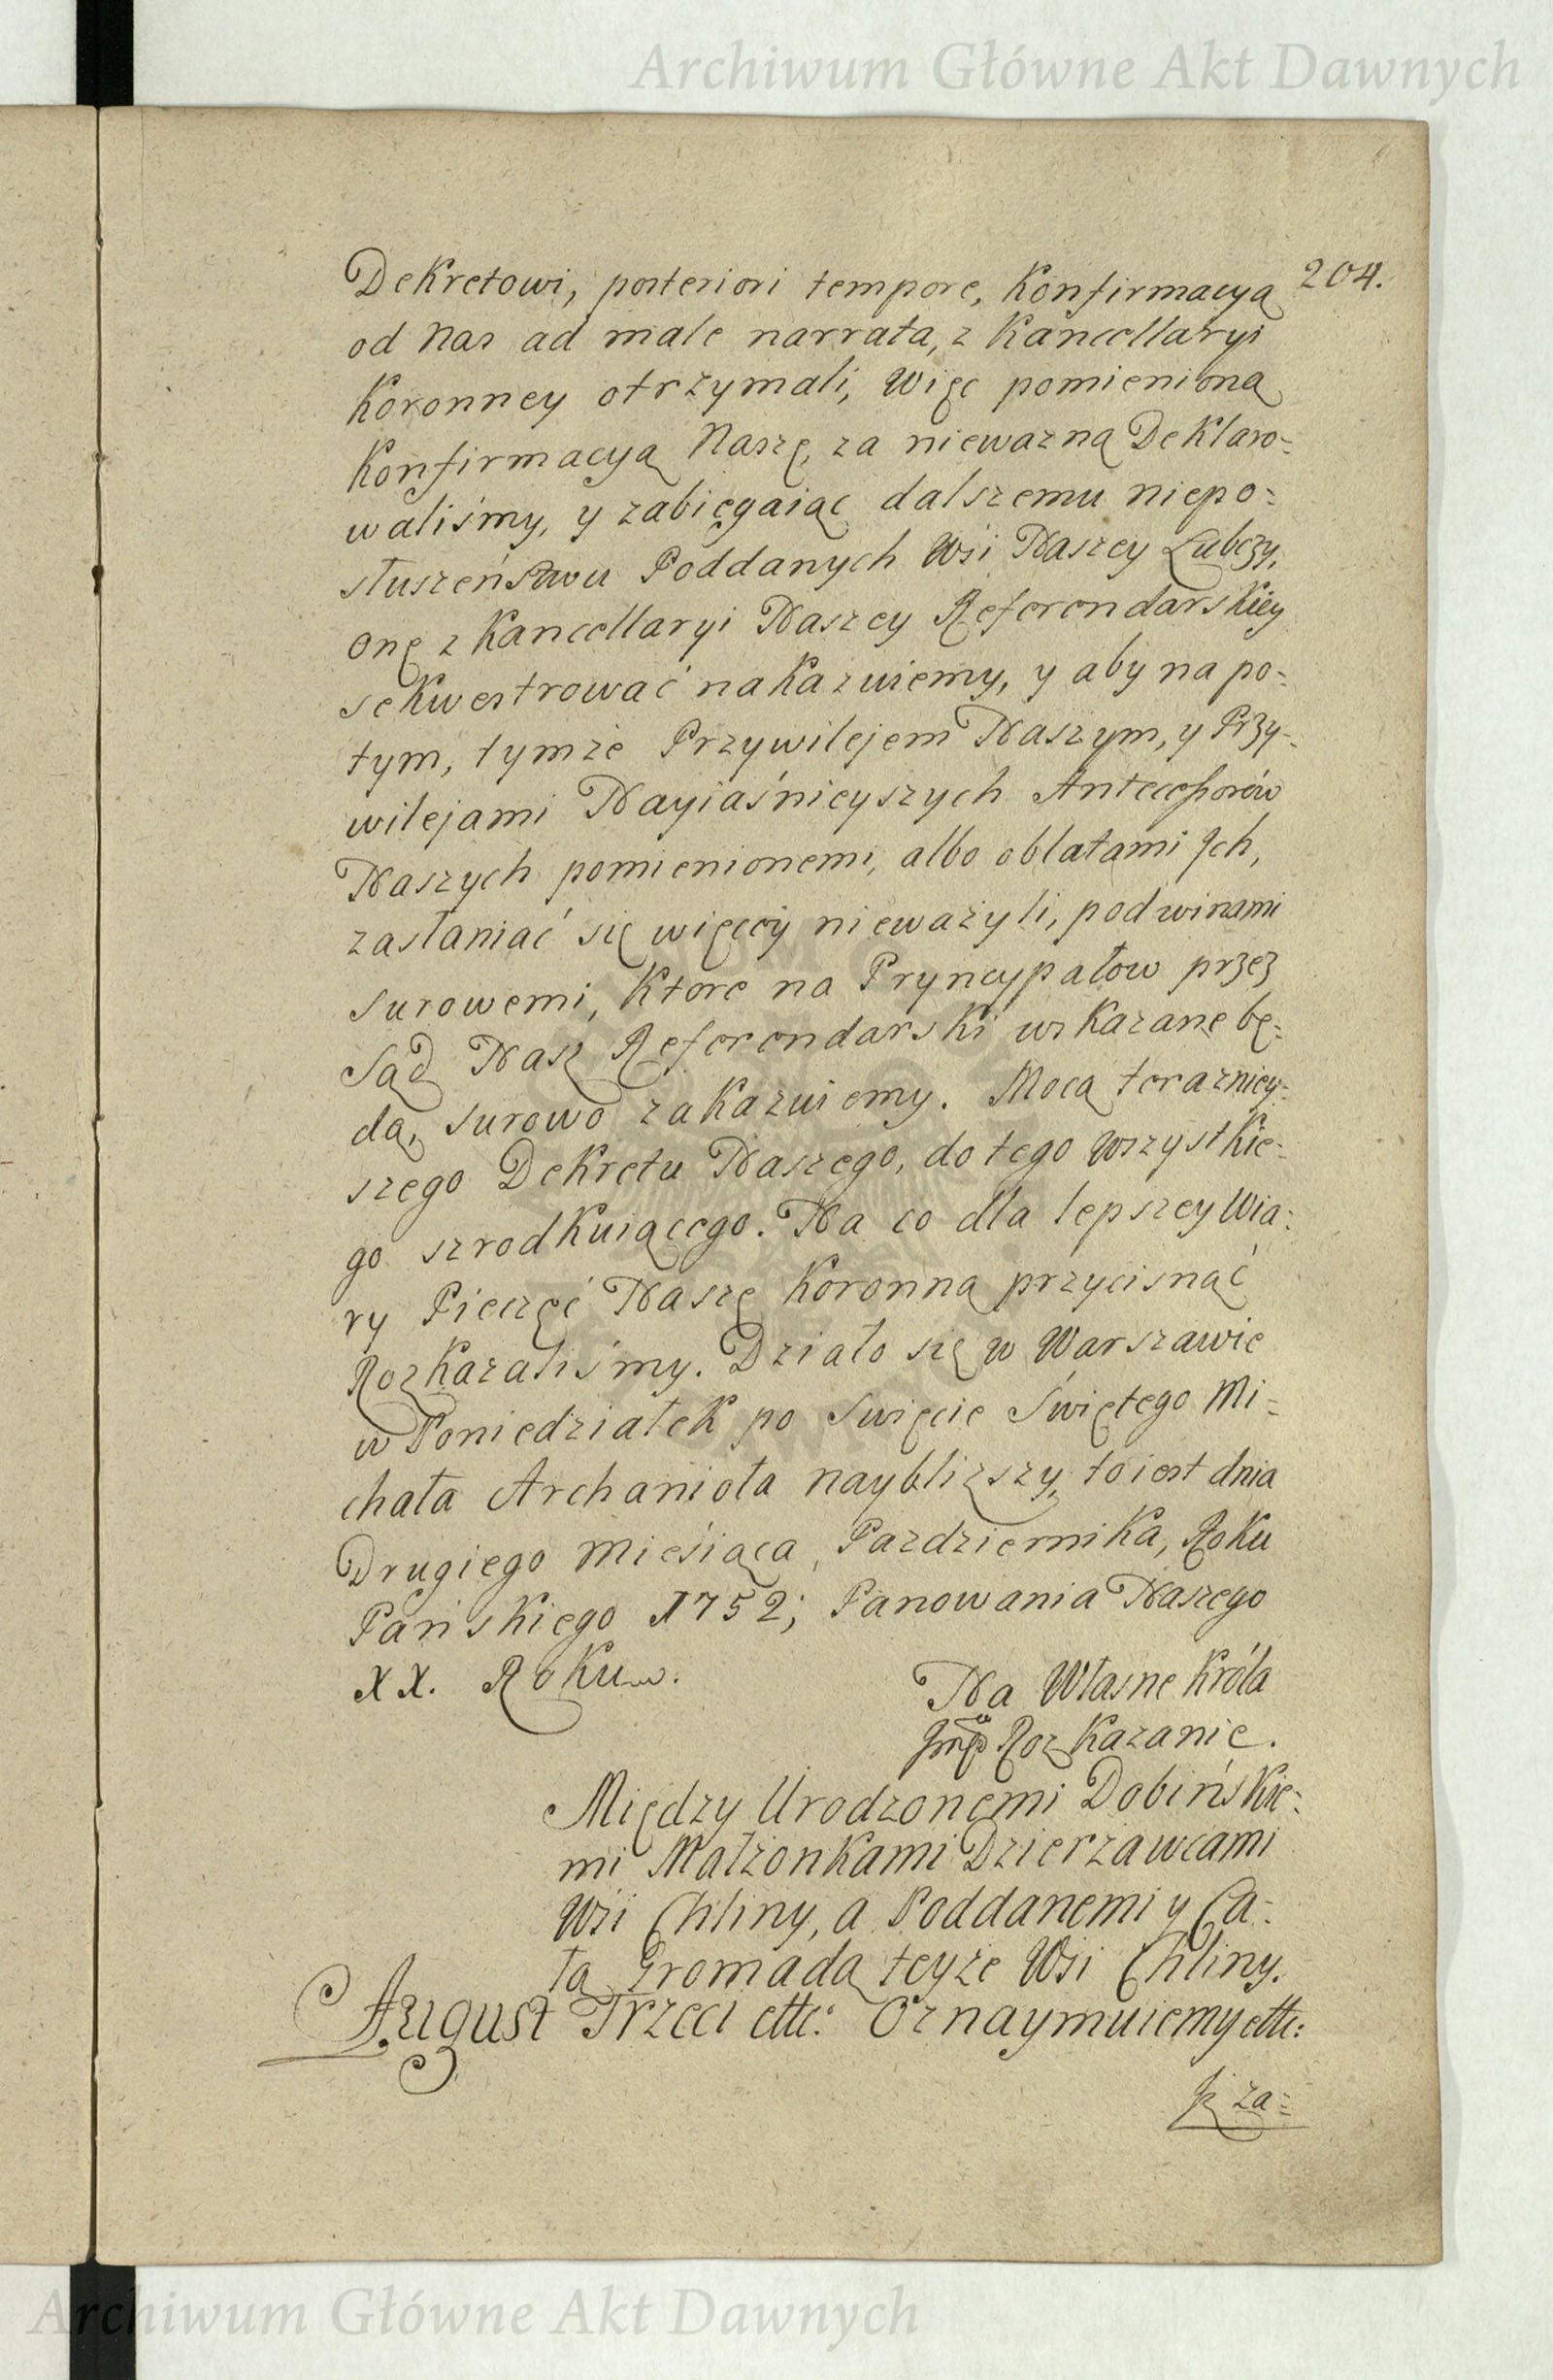 Archiwum Główne Akt Dawnych
204.
Dekretowi, posteriori tempore, Konfirmacyą
od Nas ad male narrata, z Kancellaryi
Koronney otrzymali, Więc pomienioną
Konfirmacyą Naszę, za niewazną Deklaro=
waliśmy, y zabiegaiąc dalszemu niepo=
słuszeństwu Poddanych Wsi Naszey Lubczy,
onę z Kancellaryi Naszey Referendarskiey
sekwestrować nakazuiemy, y aby na po=
tym, tymże Przywilejem Naszym, y Przy=
wilejami Nayiaśnieyszych Antecessorów
Naszych pomienionemi, albo oblatami Ich,
zasłaniać się więcey nieważyli, pod winami
surowemi, Ktore na Pryncypałow przez
Sąd Nasz Referendarski wskazane bę=
dą, surowo zakazuiemy. Mocą terazniey=
szego Dekretu Naszego, do tego wszystkie=
go szrodkuiącego. Na co dla lepszey Wia=
ry Pieczęć Naszę Koronną przycisnąć
Rozkazaliśmy. Działo się w Warszawie
w Poniedziałek po Swięcie Świętego Mi=
chała Archanioła naybliższy, to iest dnia
Drugiego Miesiąca Pazdziernika, Roku
Pańskiego 1752; Panowania Naszego
XX. Roku.
Na Własne Króla
Rozkazanie.
Między Urodzonemi Dobińskie=
mi Małżonkami Dzierzawcami
Wsi Chliny, a Poddanemi y Ca=
łą Gromadą teyże Wsi Chliny.
August Trzeci ettc: Oznaymuiemy ettc:
Iż za=
Archiwum Główne Akt Dawnych